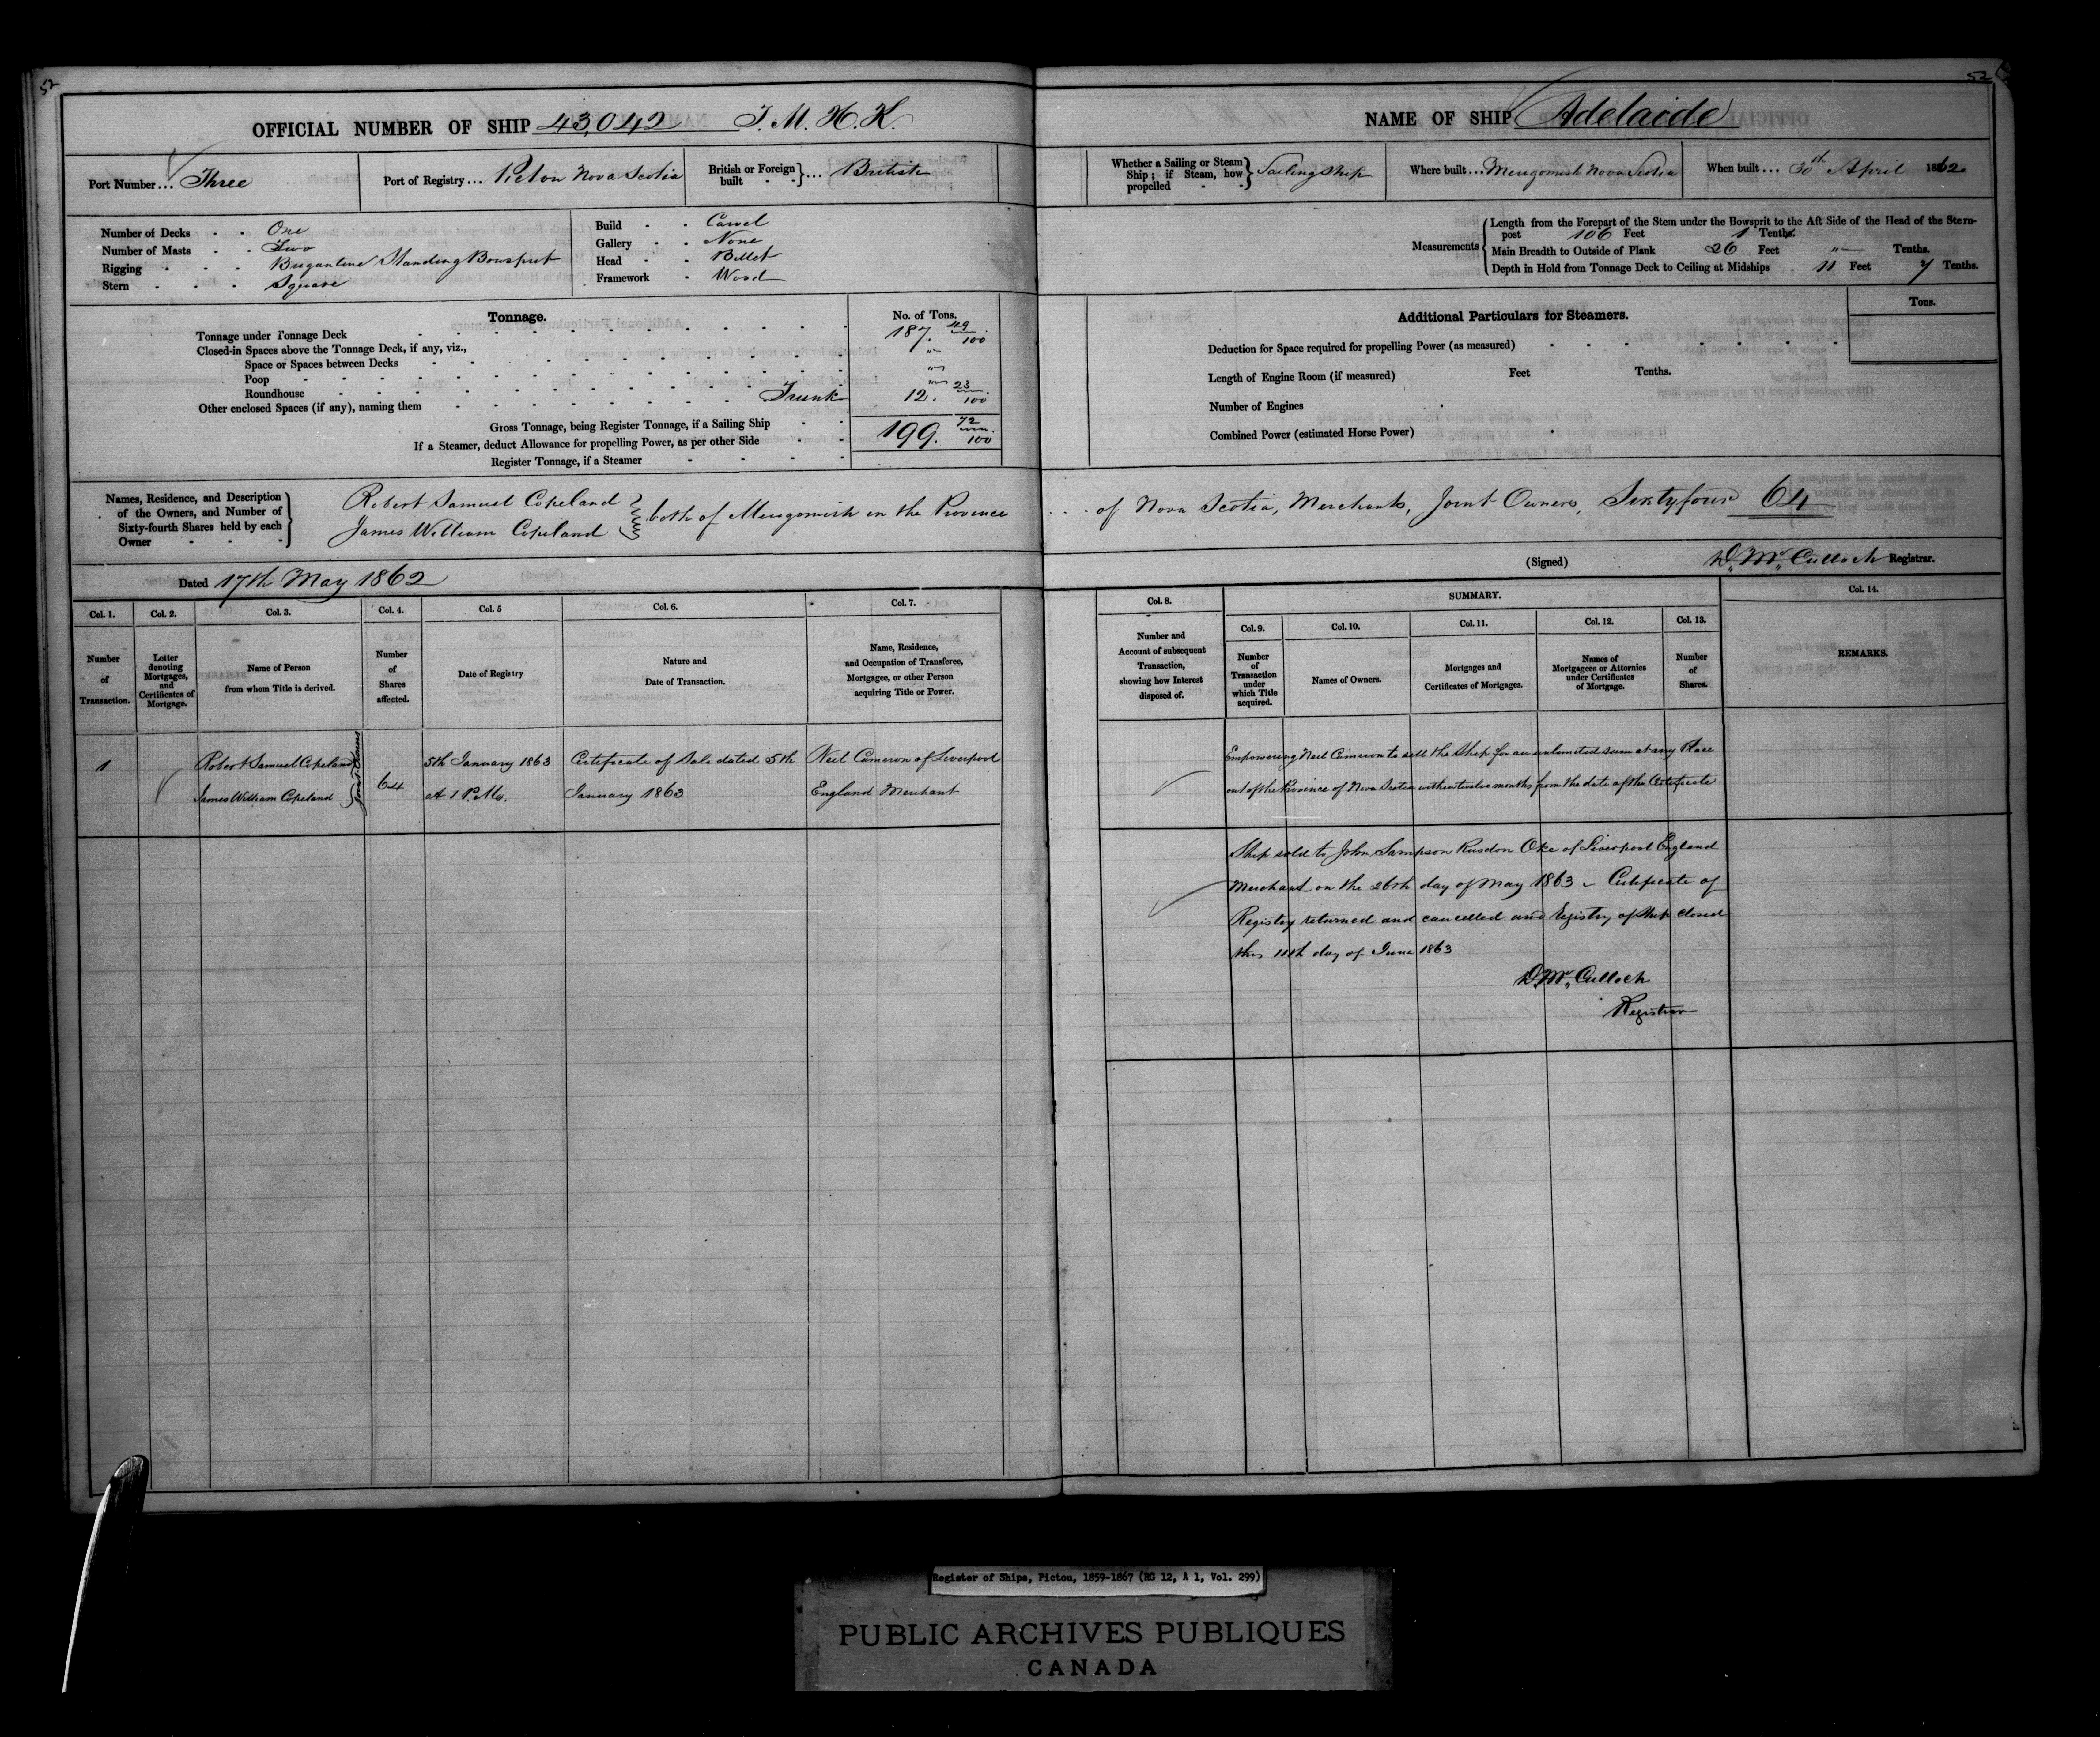 52
OFFICIAL NUMBER OF SHIP 43,042 T. M. H. K.
Port Number... Three
Port of Registry... Pictou Nova Scotia
British or Foreign built - - } ... British
Number of Decks - - One
Number of Masts - - Two
Rigging - - - Brigantine Standing Bowsprit
Stern - - - Square
Build - - Carvel
Gallery - - None
Head - - Billet
Framework - Wood
Tonnage.
No. of Tons.
Tonnage under Tonnage Deck 187. 49/100
Closed-in Spaces above the Tonnage Deck, if any, viz.,
Space or Spaces between Decks "
Poop "
Roundhouse "
Other enclosed Spaces (if any), naming them Trunk 12. 23/100
Gross Tonnage, being Register Tonnage, if a Sailing Ship 199. 72/100
If a Steamer, deduct Allowance for propelling Power, as per other Side
Register Tonnage, if a Steamer
Names, Residence, and Description
of the Owners, and Number of
Sixty-fourth Shares held by each
Owner
Robert Samuel Copeland
James William Copeland } both of Merigomish in the Province
Dated 17th May 1862
Col. 1. Col. 2. Col. 3. Col. 4. Col. 5 Col. 6. Col. 7.
Number of Transaction.
Letter denoting Mortgages, and Certificates of Mortgage.
Name of Person from whom Title is derived.
Number of Shares affected.
Date of Registry
Nature and Date of Transaction.
Name, Residence, and Occupation of Transferee, Mortgagee, or other Person acquiring Title or Power.
1
Robert Samuel Copeland
James William Copeland
Joint Owners
64
5th January 1863
at 1 P.M.
Certificate of Sale dated 5th
January 1863
Neil Cameron of Liverpool
England Merchant
52
NAME OF SHIP Adelaide
Whether a Sailing or Steam Ship; if Steam, how propelled - - } Sailing Ship
Where built... Merigomish Nova Scotia
When built... 30th April 1862
Measurements
Length from the Forepart of the Stem under the Bowsprit to the Aft Side of the Head of the Stern-
post 106 Feet 1 Tenths.
Main Breadth to Outside of Plank 26 Feet " Tenths.
Depth in Hold from Tonnage Deck to Ceiling at Midships 11 Feet 7 Tenths.
Tons.
Additional Particulars for Steamers.
Deduction for Space required for propelling Power (as measured)
Length of Engine Room (if measured) Feet Tenths.
Number of Engines
Combined Power (estimated Horse Power)
of Nova Scotia, Merchants, Joint Owners, Sixty four 64
(Signed) D. Mc. Culloch Registrar.
Col. 8. SUMMARY. Col. 14.
Col. 9. Col. 10. Col. 11. Col. 12. Col. 13.
Number and Account of subsequent Transaction, showing how Interest disposed of.
Number of Transaction under which Title acquired.
Names of Owners.
Mortgages and Certificates of Mortgages.
Names of Mortgagees or Attornies under Certificates of Mortgage.
Number of Shares.
REMARKS.
Empowering Neil Cameron to sell the Ship for an unlimited sum at any Place
out of the Province of Nova Scotia within twelve months from the date of the Certificate
Ship sold to John Sampson Rusdon Oke of Liverpool England
Merchant on the 26th day of May 1863 Certificate of
Registry returned and cancelled and Registry of Ship closed
this 11th day of June 1863
D. Mc. Culloch
Registrar
Register of Ships, Pictou, 1859-1867 (RG 12, A 1, Vol. 299)
PUBLIC ARCHIVES PUBLIQUES
CANADA